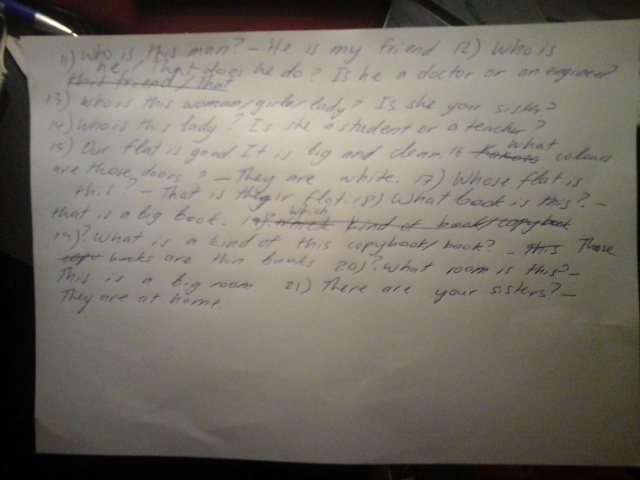 11) Who is this man? - He is my friend 12) Who is
he / What does he do? Is he a doctor or an engineer?
this friend / That
13) Who is this woman/girl or lady? Is she your sister?
14) Who is this lady? Is she a student or a teacher?
15) Our flat is good. It is big and clean. 16 What colours
are those doors? - They are white. 17) Whose flat is
this? - That is their flat. 18) What book is this? -
that is a big book. 19)? Which kind of book/copybook
19)? What is a kind of this copybook/book? - This Those
copy books are thin books 20)? What room is this? -
This is a big room 21) There are your sisters? -
They are at home